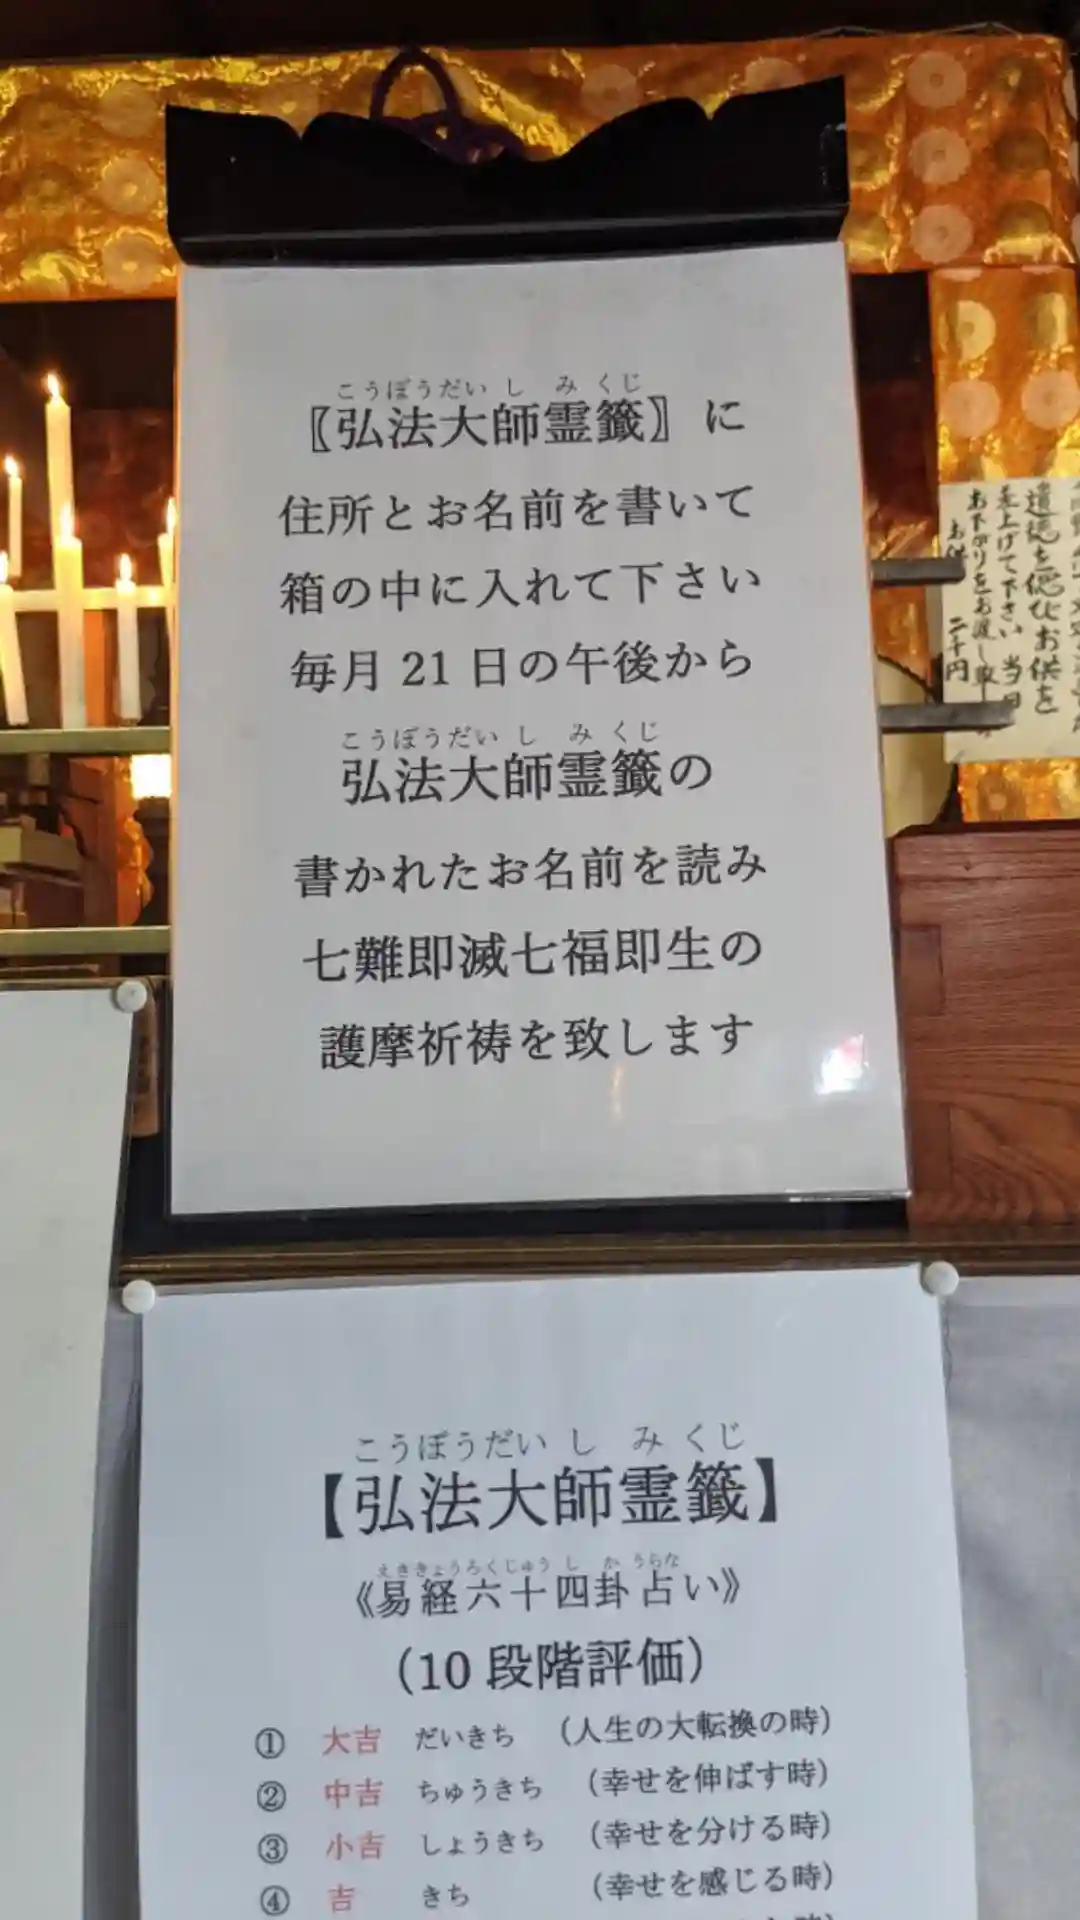 こうぼうだいしみくじ
〖弘法大師霊籤〗に
住所とお名前を書いて
箱の中に入れて下さい
毎月21日の午後から
こうぼうだいしみくじ
弘法大師霊籤の
書かれたお名前を読み
七難即滅七福即生の
護摩祈祷を致します
遺徳を偲びお供を
差上げて下さい 当日
お下がりをお渡し致
お供 二千円
こうぼうだいしみくじ
【弘法大師霊籤】
えききょうろくじゅうしかうらな
《易経六十四卦占い》
(10段階評価)
① 大吉 だいきち (人生の大転換の時)
② 中吉 ちゅうきち (幸せを伸ばす時)
③ 小吉 しょうきち (幸せを分ける時)
④ 吉 きち (幸せを感じる時)